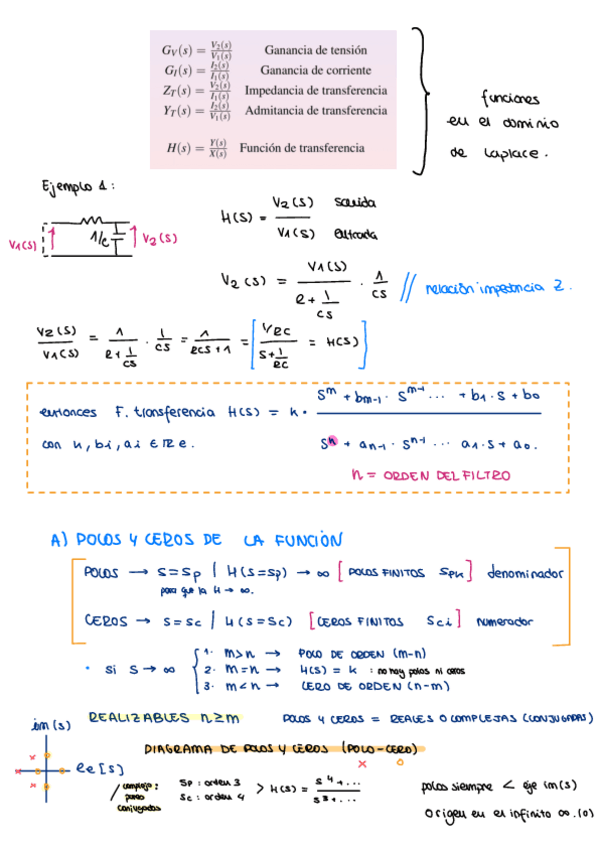 G_V(s) = V_2(s)/V_1(s) Ganancia de tensión
G_I(s) = I_2(s)/I_1(s) Ganancia de corriente
Z_T(s) = V_2(s)/I_1(s) Impedancia de transferencia
Y_T(s) = I_2(s)/V_1(s) Admitancia de transferencia
H(s) = Y(s)/X(s) Función de transferencia
funciones
en el dominio
de Laplace.
Ejemplo 1:
V1(s) 1/c V2(s)
H(s) = V2(s) salida / V1(s) entrada
V2(s) = V1(s) / (R + 1/cs) · 1/cs // relación impedancia Z.
V2(s)/V1(s) = 1/(R + 1/cs) · 1/cs = 1/(RCS+1) = [ (1/RC)/(S + 1/RC) = H(s) ]
entonces F. transferencia H(s) = k · (s^m + b_m-1 · s^m-1 ... + b1 · s + b0) / (s^n + a_n-1 · s^n-1 ... a1 · s + a0.)
con k, bi, ai ∈ Re.
n = ORDEN DEL FILTRO
A) POLOS Y CEROS DE LA FUNCIÓN
POLOS → s = sp | H(s=sp) → ∞ [POLOS FINITOS Spk] denominador
para que la H → ∞.
CEROS → s = sc | H(s=sc) [CEROS FINITOS Sci] numerador
· Si S → ∞ { 1. m>n → POLO DE ORDEN (m-n)
2. m=n → H(s) = k : no hay polos ni ceros
3. m<n → CERO DE ORDEN (n-m)
im(s) REALIZABLES n≥m POLOS Y CEROS = REALES O COMPLEJAS (CONJUGADAS)
DIAGRAMA DE POLOS Y CEROS (POLO-CERO)
x o
Re[s]
/ complejo: pares conjugados
Sp : orden 3
Sc : orden 4
> H(s) = s^4+... / s^3+...
polos siempre < eje im(s)
Origen en el infinito ∞.(0)